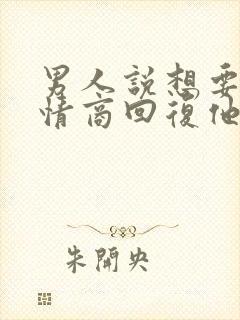 男人説想要
情商回復他
朱開央